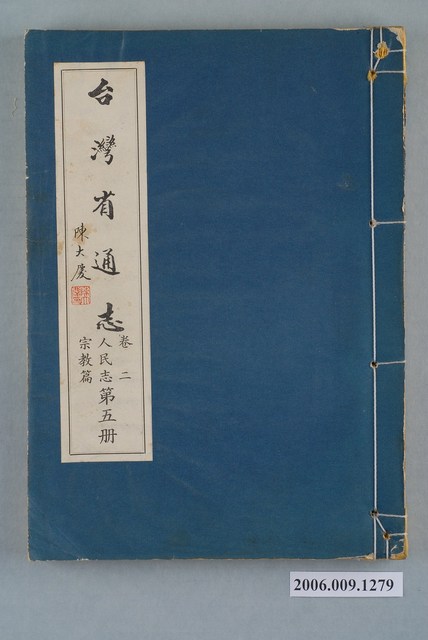 台灣省通志
卷二
人民志
宗教篇
第五冊
陳大慶
2006.009.1279